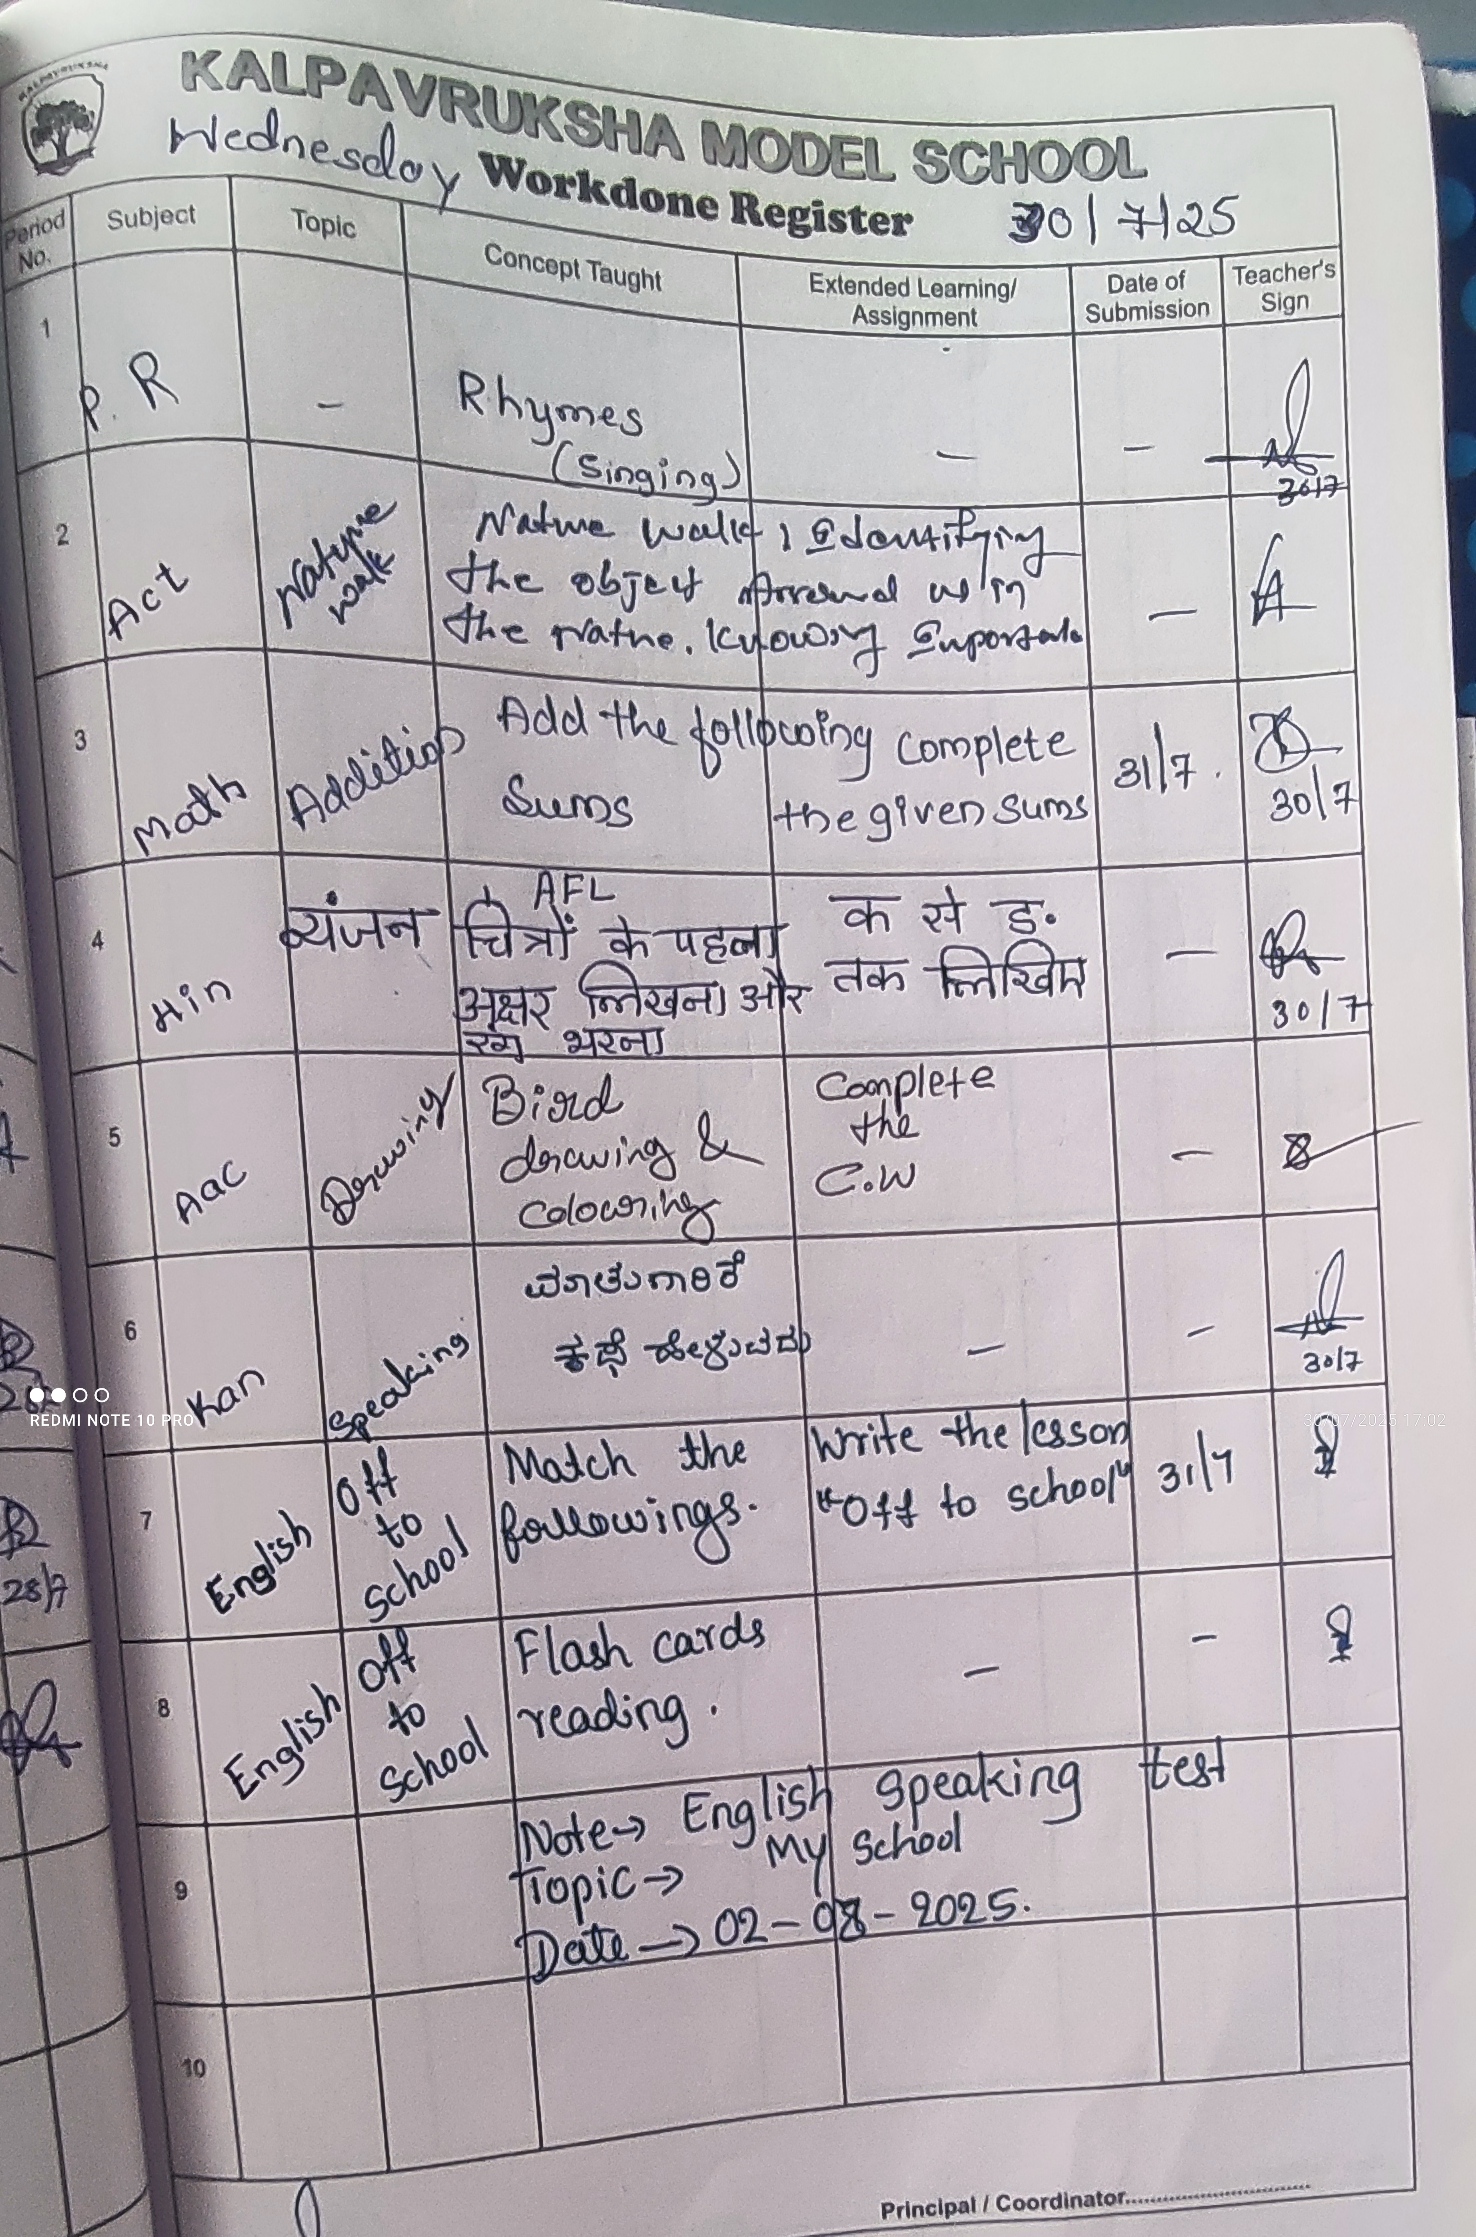 KALPAVRUKSHA
KALPAVRUKSHA MODEL SCHOOL
Wednesday Workdone Register 30/7/25
Period No. Subject Topic Concept Taught Extended Learning/ Assignment Date of Submission Teacher's Sign
1 P.R - Rhymes - -
(Singing)
30/7
2 Act Nature walk Nature walk, Identifying -
the object around us in
the Nature. Knowing
3 Math Addition Add the following complete 31/7.
Sums the given sums 30/7
4 Hin व्यंजन AFL
चित्रों के पहला क से ङ. -
अक्षर लिखना और तक लिखिए
रंग भरना 30/7
5 Aac Drawing Bird Complete -
drawing & the
colouring C.W
6 Kan Speaking ಮಾತುಗಾರಿಕೆ
ಕಥೆ ಹೇಳುವದು - -
30/7
7 English Off to School Match the Write the lesson 31/7
followings. "Off to school"
8 English Off to School Flash cards - -
reading.
9 Note→ English speaking test
Topic→ My School
Date→ 02-08-2025.
10
Principal / Coordinator
28/7
REDMI NOTE 10 PRO
30/07/2025 17:02